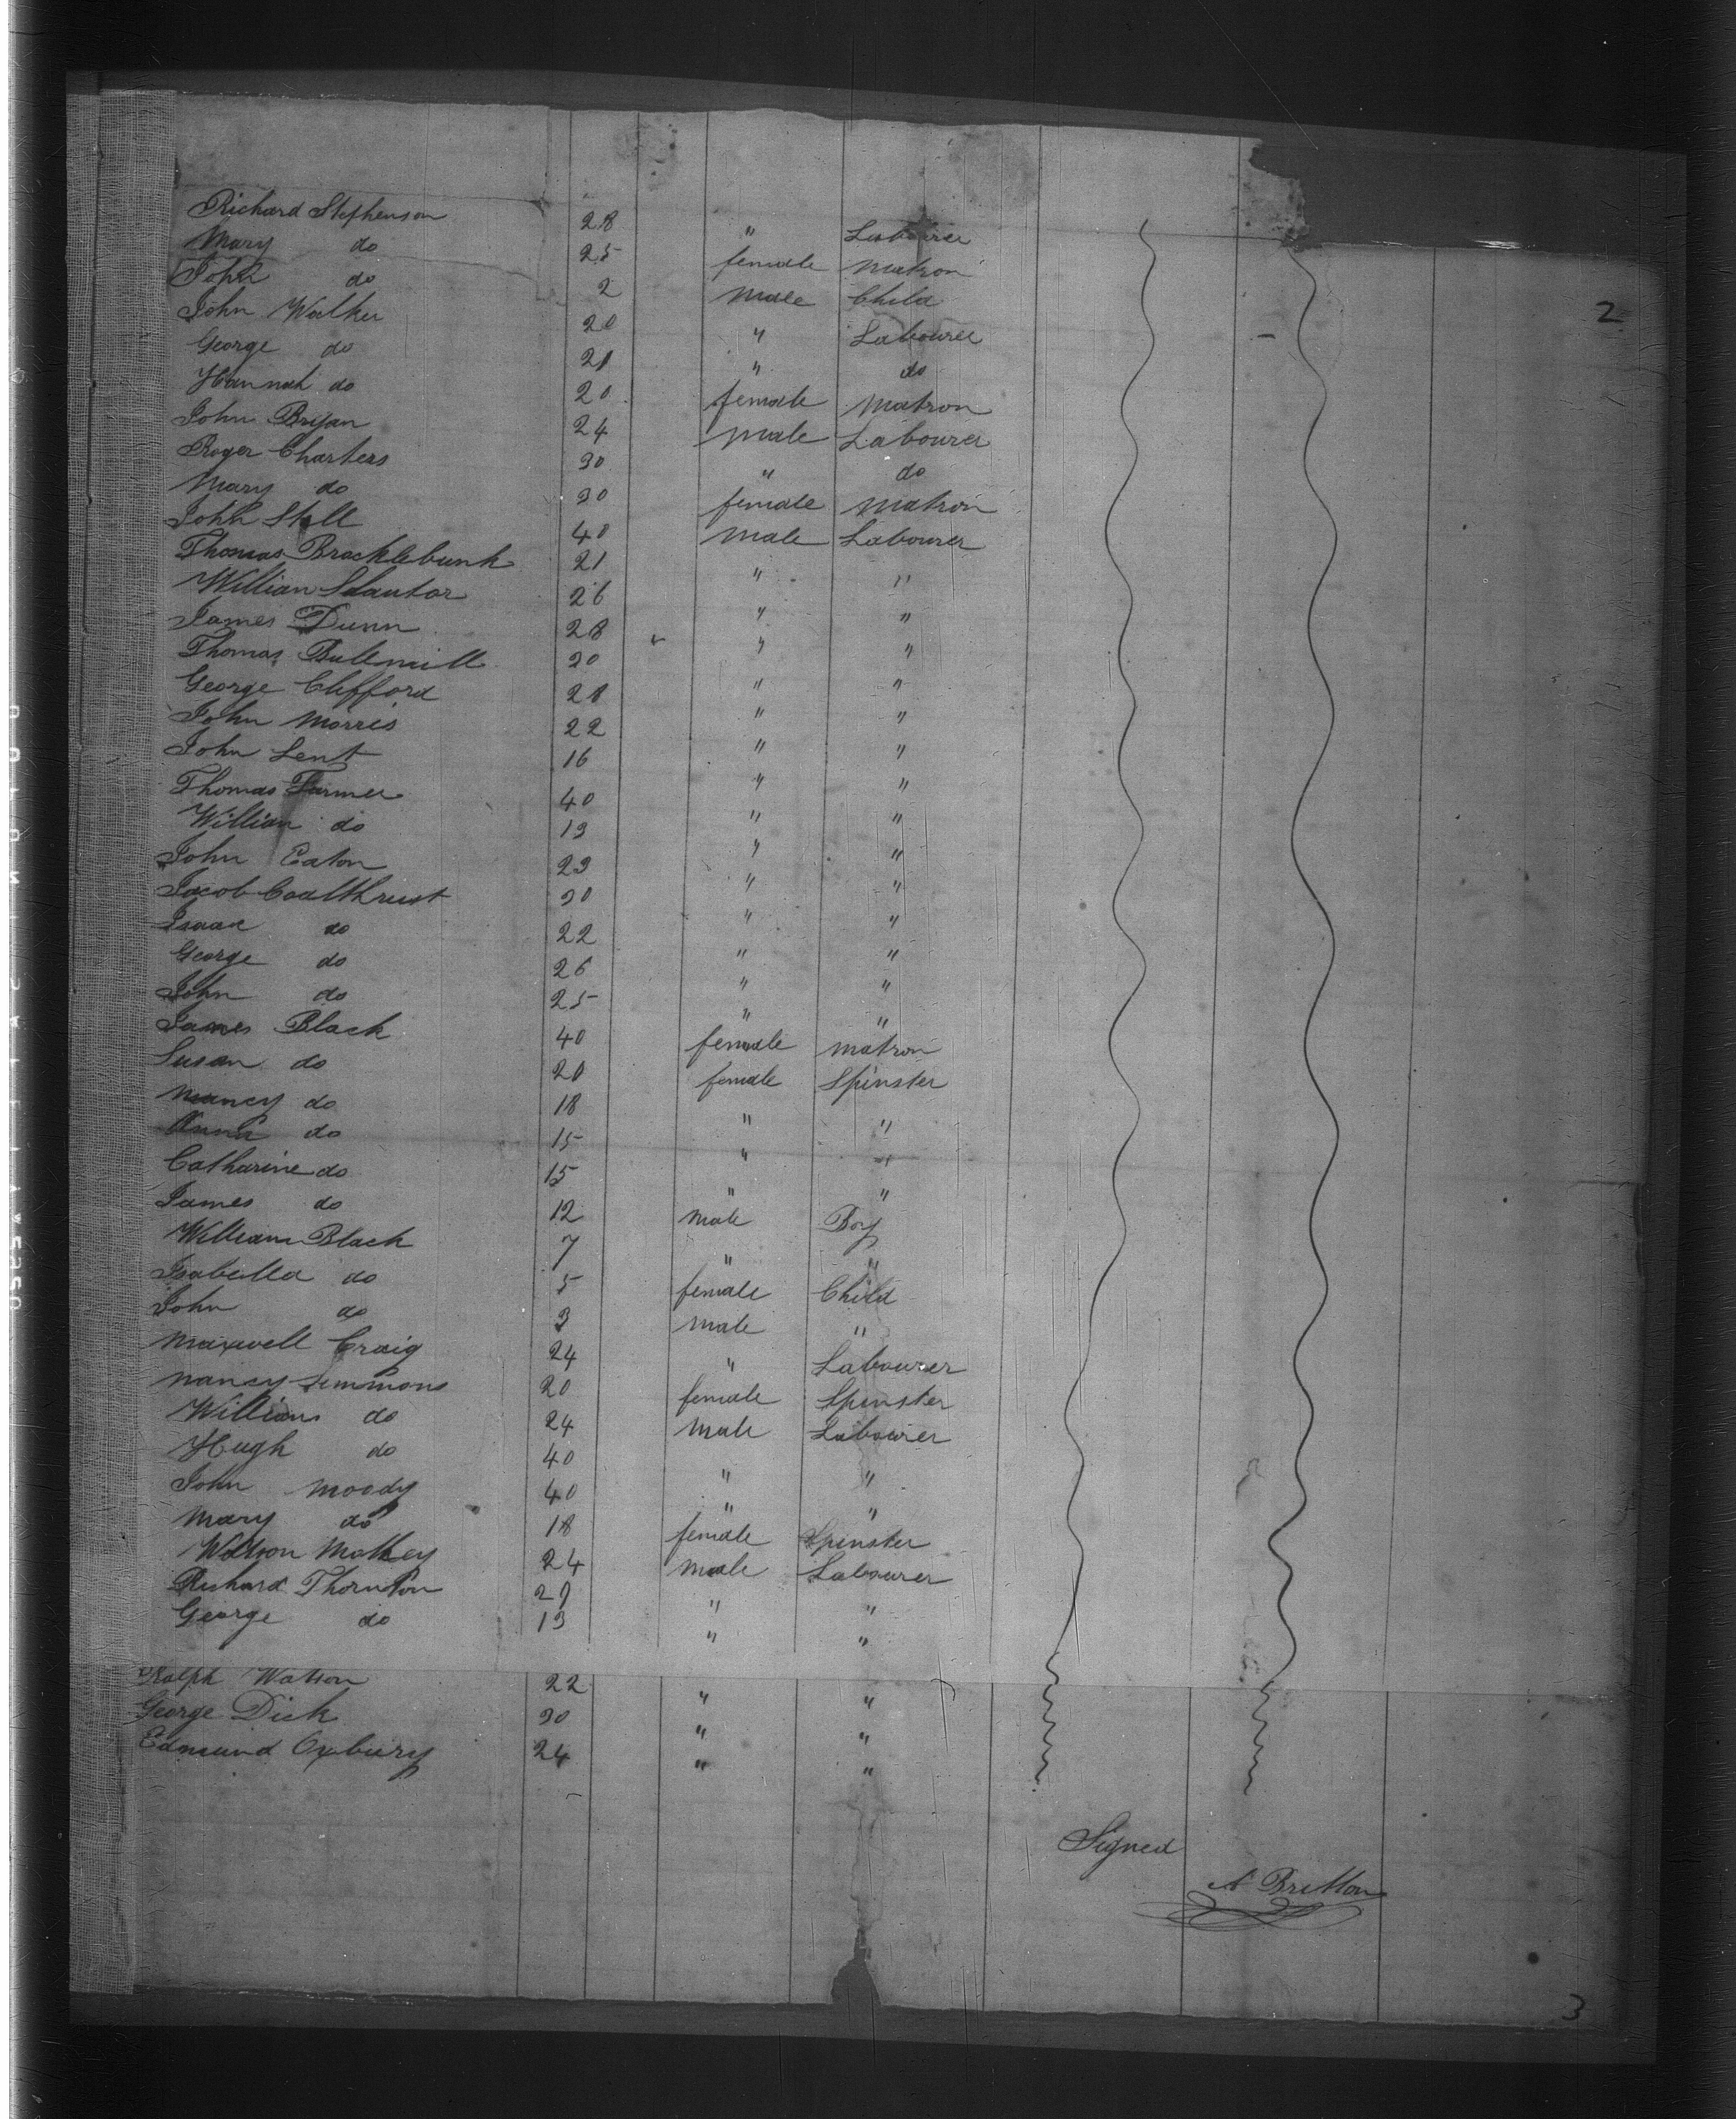 2
Richard Stephenson 28 " Labourer
Mary do 25 female Matron
John do 2 Male Child
John Walker 20 " Labourer
George do 21 " do
Hannah do 20 female Matron
John Bryan 24 Male Labourer
Roger Charters 30 " do
Mary do 30 female Matron
John Still 40 Male Labourer
Thomas Bracklebunk 21 " "
William 26 " "
James Dunn 28 " "
Thomas Bullmill 20 " "
George Clifford 21 " "
John Morris 22 " "
John Lent 16 " "
Thomas Farmer 40 " "
William do 19 " "
John Eaton 23 " "
Jacob Coalthrust 30 " "
Isaac do 22 " "
George do 26 " "
John do 25 " "
James Black 40 female Matron
Susan do 20 female Spinster
Nancy do 18 " "
Anna do 15 " "
Catharine do 15 " "
James do 12 Male Boy
William Black 7 " "
Isabella do 5 female Child
John do 3 Male "
Maxwell Craig 24 " Labourer
Nancy Simmons 20 female Spinster
William do 24 Male Labourer
Hugh do 40 " "
John Moody 40 " "
Mary do 18 female Spinster
Watson 24 Male Labourer
Richard Thornton 27 " "
George do 19 " "
Ralph Watson 22 " "
George Dick 30 " "
Edmund Oxbury 24 " "
Signed
A Britton
3